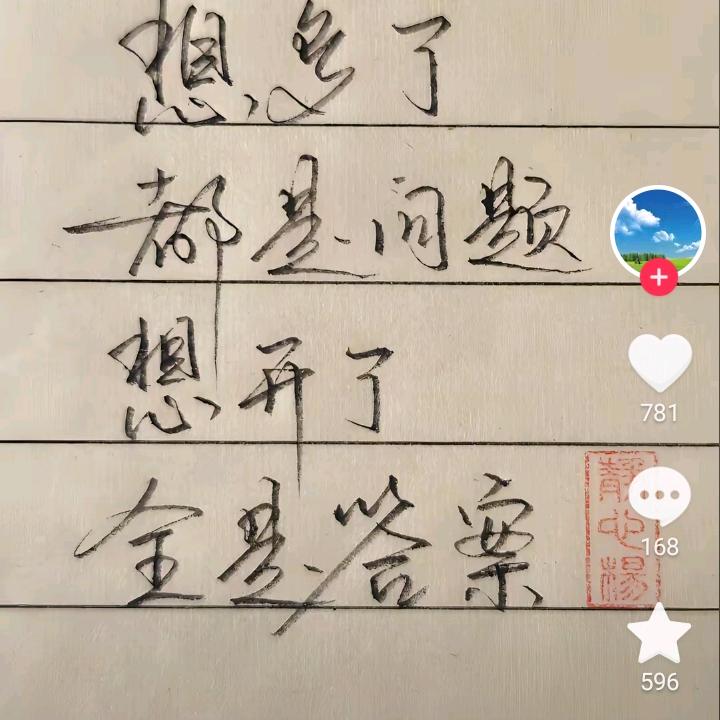 想多了
都是问题
想开了
全是答案
静心杨
781
168
596